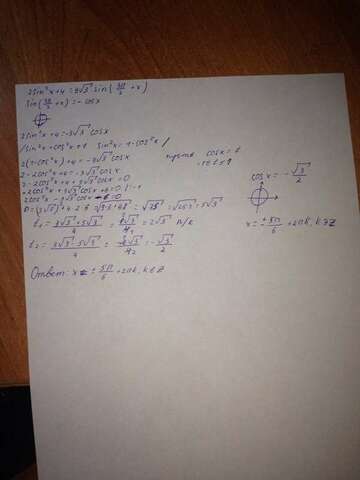 2sin²x+4=3√3 sin(3π/2+x)
sin(3π/2+x)=-cosx
2sin²x+4=-3√3 cosx
/sin²x+cos²x=1 sin²x=1-cos²x/
2(1-cos²x)+4=-3√3 cosx
пусть cosx=t
-1≤t≤1
2-2cos²x+4=-3√3 cosx
2-2cos²x+4+3√3 cosx=0
-2cos²x+3√3 cosx+6=0 |:-1
2cos²x-3√3 cosx-6=0
D=(3√3)²+4·2·6=√9·3+48=√75=√25·3=5√3
t₁=(3√3+5√3)/4=8√3/4=2√3 п/к
t₂=(3√3-5√3)/4=-2√3/4=-√3/2
cosx=-√3/2
x=±5π/6+2πk, k∈Z
Ответ: x=±5π/6+2πk, k∈Z